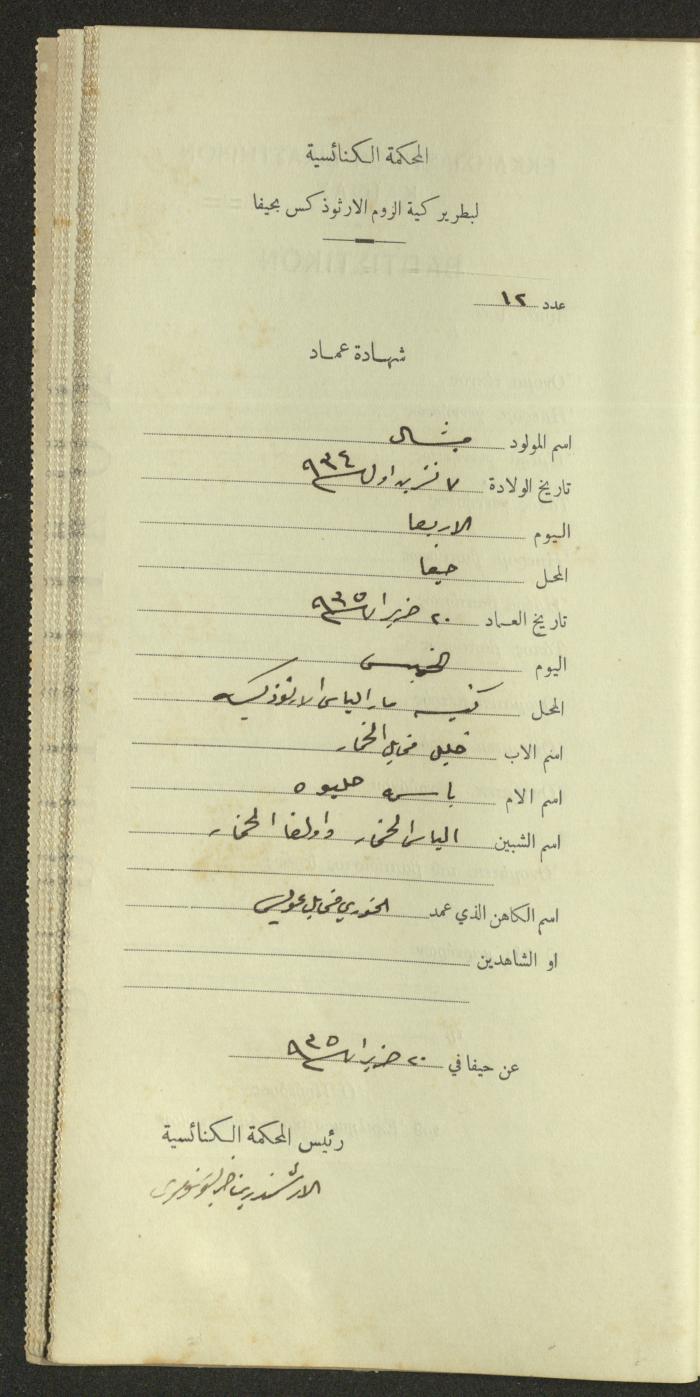 المحكمة الكنائسية
لبطريركية الروم الارثوذكس بحيفا
عدد ١٢
شهادة عماد
اسم المولود ميشال
تاريخ الولادة ٧ تشرين اول ٩٣٤
اليوم الاربعا
المحل حيفا
تاريخ العماد ٢٠ حزيران ٩٣٥
اليوم الخميس
المحل كنيسة مار الياس الارثوذكسيه
اسم الاب خليل مخايل الخمار
اسم الام
اسم الشبين الياس الخمار واولغا الخمار
اسم الكاهن الذي عمد الخوري مخايل
او الشاهدين
عن حيفا في ٢٠ حزيران ٩٣٥
رئيس المحكمة الكنائسية
الارشمندريت